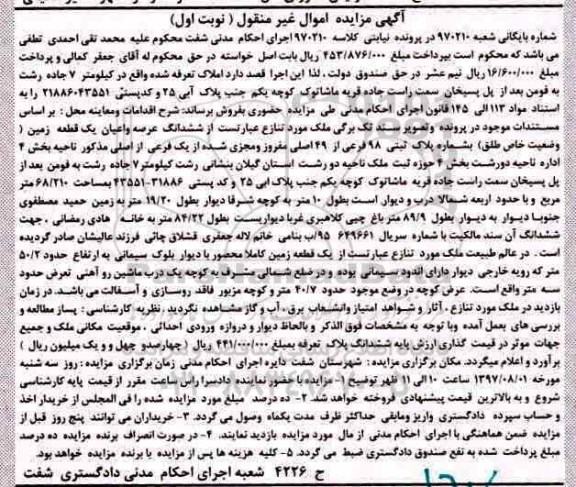 آگهی مزایده اموال غیر منقول ( نوبت اول)
شماره بایگانی شعبه ۹۷۰۲۱۰ در پرونده نیابتی کلاسه ۹۷۰۲۱۰ اجرای احکام مدنی شفت محکوم علیه محمد تقی احمدی تطفی
می باشد که محکوم است بپرداخت مبلغ ۴۵۳/۸۷۶/۰۰۰ ریال بابت اصل خواسته در حق محکوم له آقای جعفر کمالی و پرداخت
مبلغ ۱۶/۶۰۰/۰۰۰ ریال نیم عشر در حق صندوق دولت ، لذا این اجرا قصد دارد املاک تعرفه شده واقع در کیلومتر ۷ جاده رشت
به فومن بعد از پل پسیخان سمت راست جاده قریه ماشاتوک کوچه یکم جنب پلاک آبی ۲۵ و کدپستی ۲۱۸۸۶۰۴۳۵۵۱ را به
استناد مواد ۱۱۳ الی ۱۴۵ قانون اجرای احکام مدنی طی مزایده حضوری بفروش برساند: شرح اقدامات ومعاینه محل : بر اساس
مستندات موجود در پرونده وتصویر سند تک برگی ملک مورد تنازع عبارتست از ششدانگ عرصه واعیان یک قطعه زمین (
وضعیت خاص طلق) بشماره پلاک ثبتی ۹۸ فرعی از ۴۹ اصلی مفروز ومجزی شده از یک فرعی از اصلی مذکور ناحیه بخش ۴
اداره ناحیه دورشت بخش ۴ حوزه ثبت ملک ناحیه دو رشت استان گیلان بنشانی رشت کیلومتر ۷ جاده رشت به فومن بعد از
پل پسیخان سمت راست جاده قریه ماشاتوک کوچه یکم جنب پلاک ابی ۲۵ و کد پستی ۳۱۸۸۶-۴۳۵۵۱ بمساحت ۶۸/۲۱۰ متر
مربع و با حدود اربعه شمالا درب و دیوار است بطول ۱۰ متر به کوچه شرقا دیوار بطول ۱۹/۲۰ متر به زمین حمید مصطفوی
جنوبا دیوار به دیوار بطول ۸۹/۹ متر باغ چیی کلاهبری غربا دیواریست بطول ۸۴/۲۲ متر به خانه هادی رمضانی ، جهت
ششدانگ آن سند مالکیت با شماره سریال ۶۴۹۶۶۱ ۹۵/ب بنامی خانم لاله جعفری قشلاق چائی فرزند عالیشان صادر گردیده
است . در عالم طبیعت ملک مورد تنازع عبارتست از یک قطعه زمین کاملا محصور با دیوار بلوک سیمانی به ارتفاع حدود ۵۰/۲
متر که رویه خارجی دیوار دارای اندود سیمانی بوده و در ضلع شمالی مشرف به کوچه یک درب ماشین رو آهنی تعرض حدود
سه متر واقع است. عرض کوچه در وضع موجود حدود ۴۰/۷ متر و کوچه مزبور فاقد روسازی و آسفالت می باشد. در زمان
بازدید در ملک مورد تنازع ، آثار و شواهد امتیاز وانشعاب برق، آب و گاز مشاهده نگردید .نظریه کارشناسی : پساز مطالعه و
بررسی های بعمل آمده وبا توجه به مشخصات فوق الذکر و بالحاظ دیوار و دروازه ورودی احداثی ، موقعیت مکانی ملک و جمیع
جهات موثر در قیمت گذاری ارزش پایه ششدانگ پلاک تعرفه بمبلغ ۴۴۱/۰۰۰/۰۰۰ ریال ( چهارصدو چهل و و یک میلیون ریال )
برآورد و اعلام میگردد. مکان برگزاری مزایده : شهرستان شفت دایره اجرای احکام مدنی زمان برگزاری مزایده : روز سه شنبه
مورخه ۱۳۹۷/۰۸/۰۱ ساعت ۱۰ الی ۱۱ ظهر توضیح ۱- مزایده باحضور نماینده دادسرا راس ساعت مقرر از قیمت پایه کارشناسی
شروع و به بالاترین قیمت پیشنهادی فروخته خواهد شد ۲- ده درصد مبلغ مورد مزایده شده را فی المجلس از خریدار اخذ
و حساب سپرده دادگستری واریز ومابقی حداکثر ظرف مدت یکماه وصول می گردد. ۳- خریداران می توانند پنج روز قبل از
مزایده ضمن هماهنگی با اجرای احکام مدنی از مال مورد مزایده بازدید نمایند. ۴- در صورت انصراف برنده مزایده ده درصد
مبلغ پرداخت شده به نفع صندوق دادگستری ضبط می گردد. ۵- کلیه هزینه ها پس از مزایده با برنده مزایده خواهد بود.
ح ۴۲۲۶ شعبه اجرای احکام مدنی دادگستری شفت